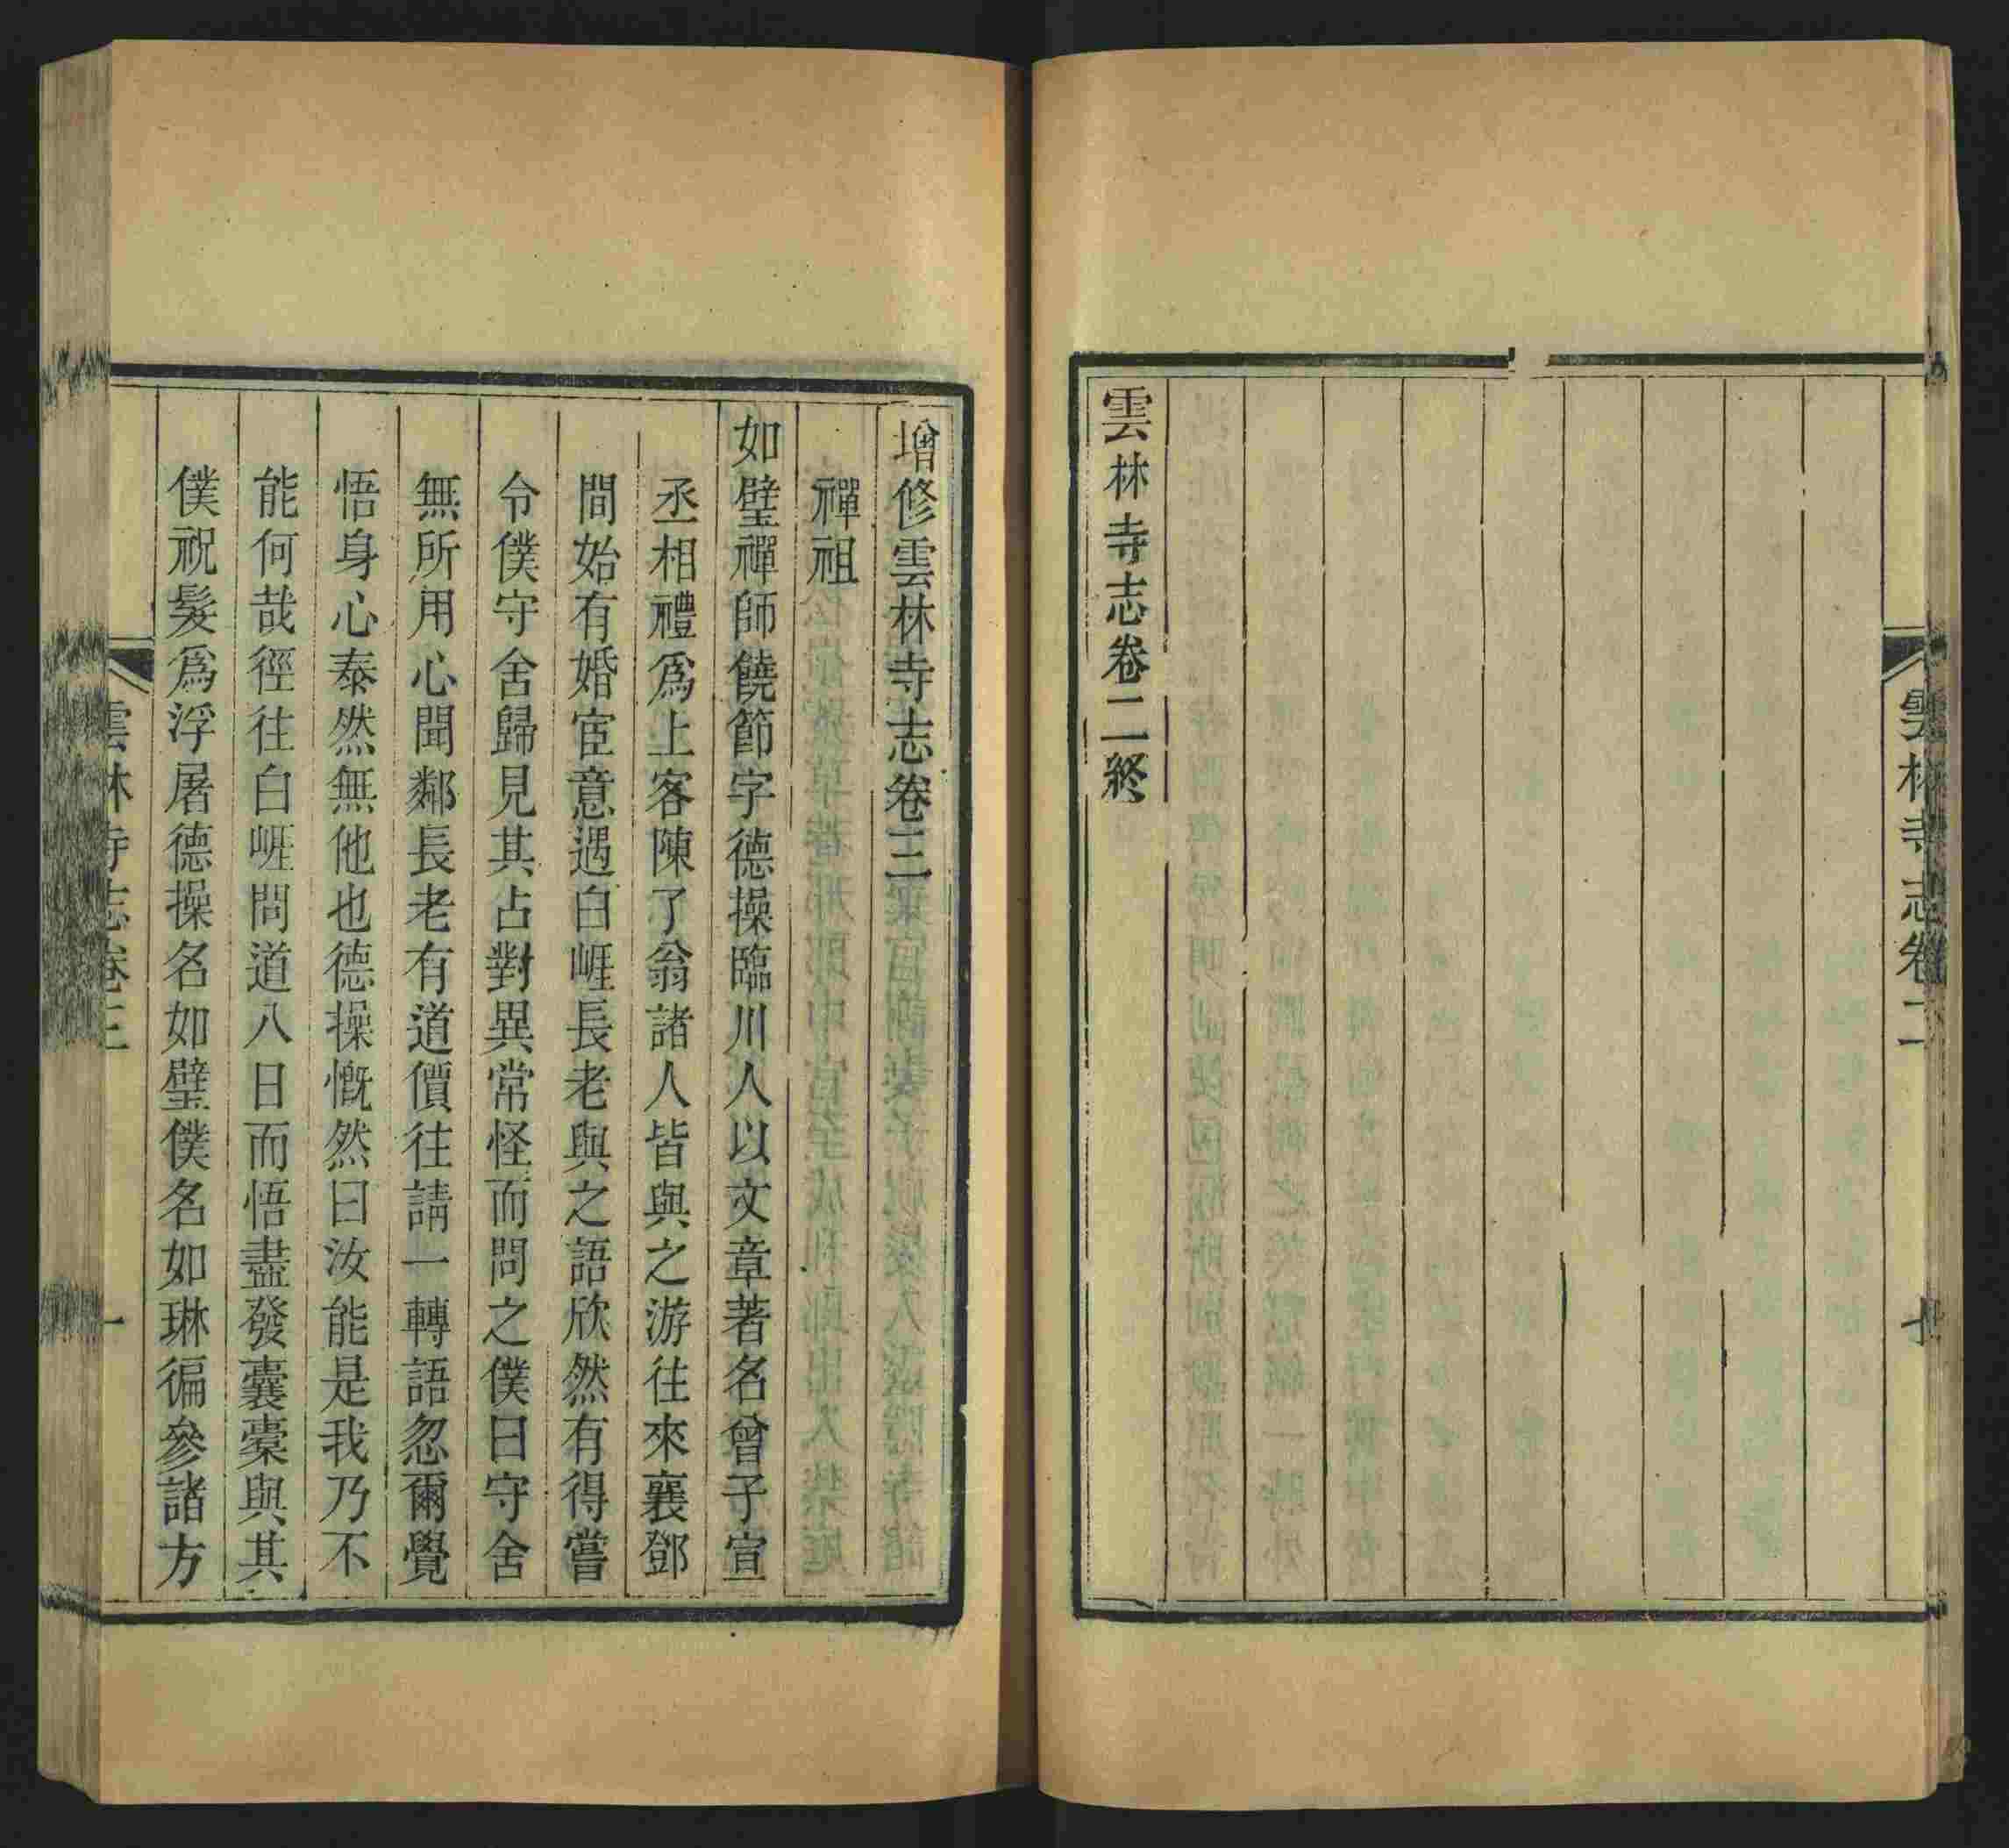 雲林寺志卷二
雲林寺志卷二終
增修雲林寺志卷三
禪祖
如璧禪師饒節字德操臨川人以文章著名曾子宣
丞相禮爲上客陳了翁諸人皆與之游往來襄鄧
間始有婚宦意遇白崕長老與之語欣然有得嘗
令僕守舍歸見其占對異常怪而問之僕曰守舍
無所用心聞鄰長老有道價往請一轉語忽爾覺
悟身心泰然無他也德操慨然曰汝能是我乃不
能何哉徑往白崕問道八日而悟盡發囊橐與其
僕祝髮爲浮屠德操名如璧僕名如琳徧參諸方
雲林寺志卷三
一